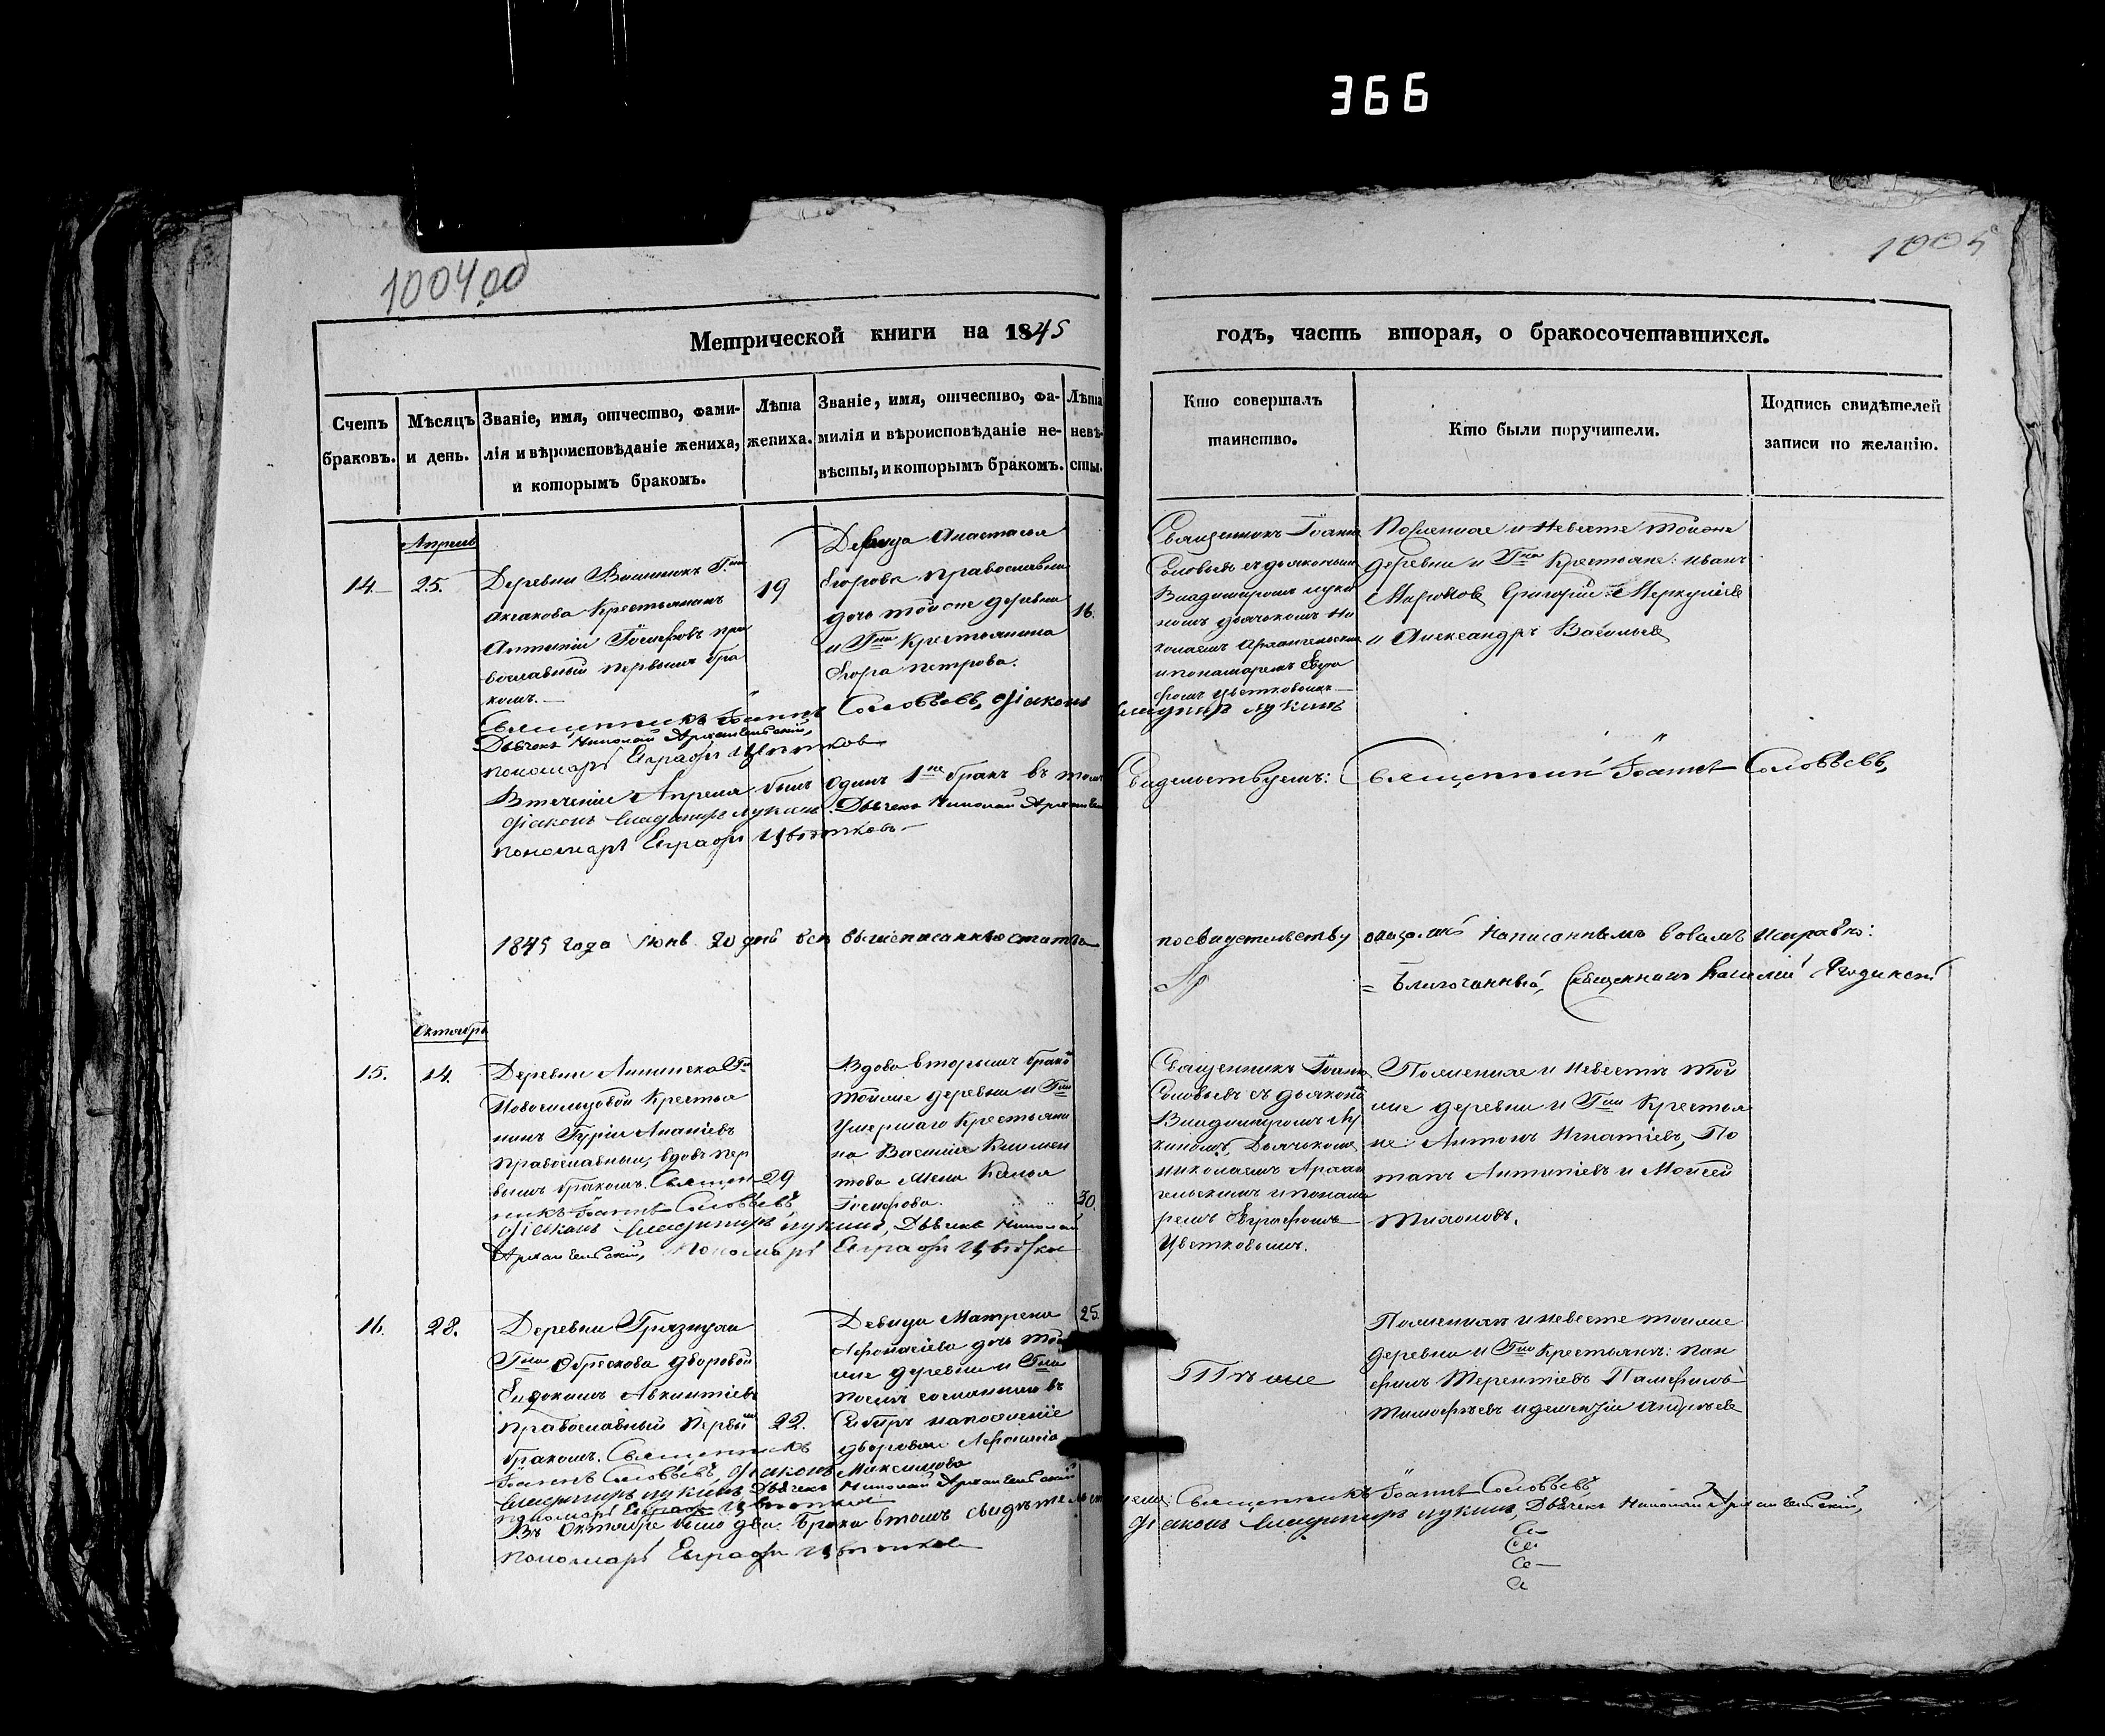 366
1004 об
1005
Метрической книги на 1845
годъ, часть вторая, о бракосочетавшихся.
Счетъ
браковъ.
Мѣсяцъ
и день.
Званіе, имя, отчество, фами-
лія и вѣроисповѣданіе жениха,
и которымъ бракомъ.
Лѣта
жениха.
Званіе, имя, отчество, фа-
милія и вѣроисповѣданіе не-
вѣсты, и которымъ бракомъ.
Лѣта
невѣ-
сты.
Кто совершалъ
таинство.
Кто были поручители.
Подпись свидѣтелей
записи по желанію.
Апрель
14.
25.
Деревни
Аксакова Крестьянинъ
Антоній Іосифовъ пра
вославный первымъ бра
комъ.
19
Девица Анастасья
Егорова православна
дочь тойже деревни
и Гна Крестьянина
Егора Петрова.
16.
Священникъ Іоаннъ
Соловьевъ съ дьякономъ
Владимиромъ Луки
нымъ дьячкомъ Ни
колаемъ Архангельским
и пономаремъ Евгра
фомъ Цветковымъ
Поженихе и Невесте тойже
деревни и Гна Крестьяне: Иванъ
Миронов Григорій Меркуліев
и Александръ Васильев
Священникъ Іоаннъ Соловьевъ, Діаконъ
Владимиръ Лукинъ
Дьячекъ Николай Архангельскій,
пономарь Евграфъ Цветков
Втеченіе Апреля былъ Одинъ 1 бракъ въ томъ
Свидетельствуемъ: Священникъ Іоаннъ Соловьевъ,
Діаконъ Владимиръ Лукинъ. Дьячекъ Николай Архангель
пономарь Евграфъ Цветковъ
1845 года Іюнь 20 дня всѣ вышеписанные статьи
посвидетельству оказались Написанными
Благочинный, Священникъ Василій
Октябрь
15.
14.
Деревни Аннинска Гна
Новосильцовой Крестья
нинъ Гурій Ананіевъ
Православный, вдовъ пер
вымъ бракомъ. Священ
никъ Іоаннъ Соловьевъ
29
Вдова вторымъ бракo
тойже деревни и Гна
Умершаго Крестьяни
на Василія Климен
това Жена Ксенья
Іосифова.
30.
Священникъ Іоаннъ
Соловьевъ съ дьякономъ
Владимиромъ Лу
кинымъ, Дьячкомъ
Николаемъ Архан
гельскимъ и понома
ремъ Евграфомъ
Цветковымъ.
Поженихе и Невесте той
же деревни и Гна Крестья
не: Антонъ Игнатіевъ, По
тапъ Антипіевъ и Моисей
Тихоновъ.
Діаконъ Владимиръ Лукинъ, Дьячекъ Николай
Архангельскій, Пономарь Евграфъ Цветков
16.
28.
Деревни Грязнухи
Гна Обрескова дворовой
Евдокимъ Авксентіевъ
православный Первы
бракомъ. Священникъ
Іоаннъ Соловьевъ, Діаконъ
22.
Девица Матрена
Афонасіева дочь той
же деревни и Гна
после сосланнаго въ
Сибирь напоселеніе
двороваго Афонасія
Максимова
25.
Тѣже
Поженихе и невесте тойже
деревни и Гна Крестьяне: Пан
филъ Терентіевъ Памфилъ
Тимофеевъ и Андреевъ
Владимиръ Лукинъ, Дьячекъ Николай Архангельскій
пономарь Евграфъ Цветков
Въ Октябре было два брака втомъ свидетельст
уемъ: Священникъ Іоаннъ Соловьевъ,
Діаконъ Владимиръ Лукинъ, Дьячекъ Николай Архангельскій,
пономарь Евграфъ Цветков